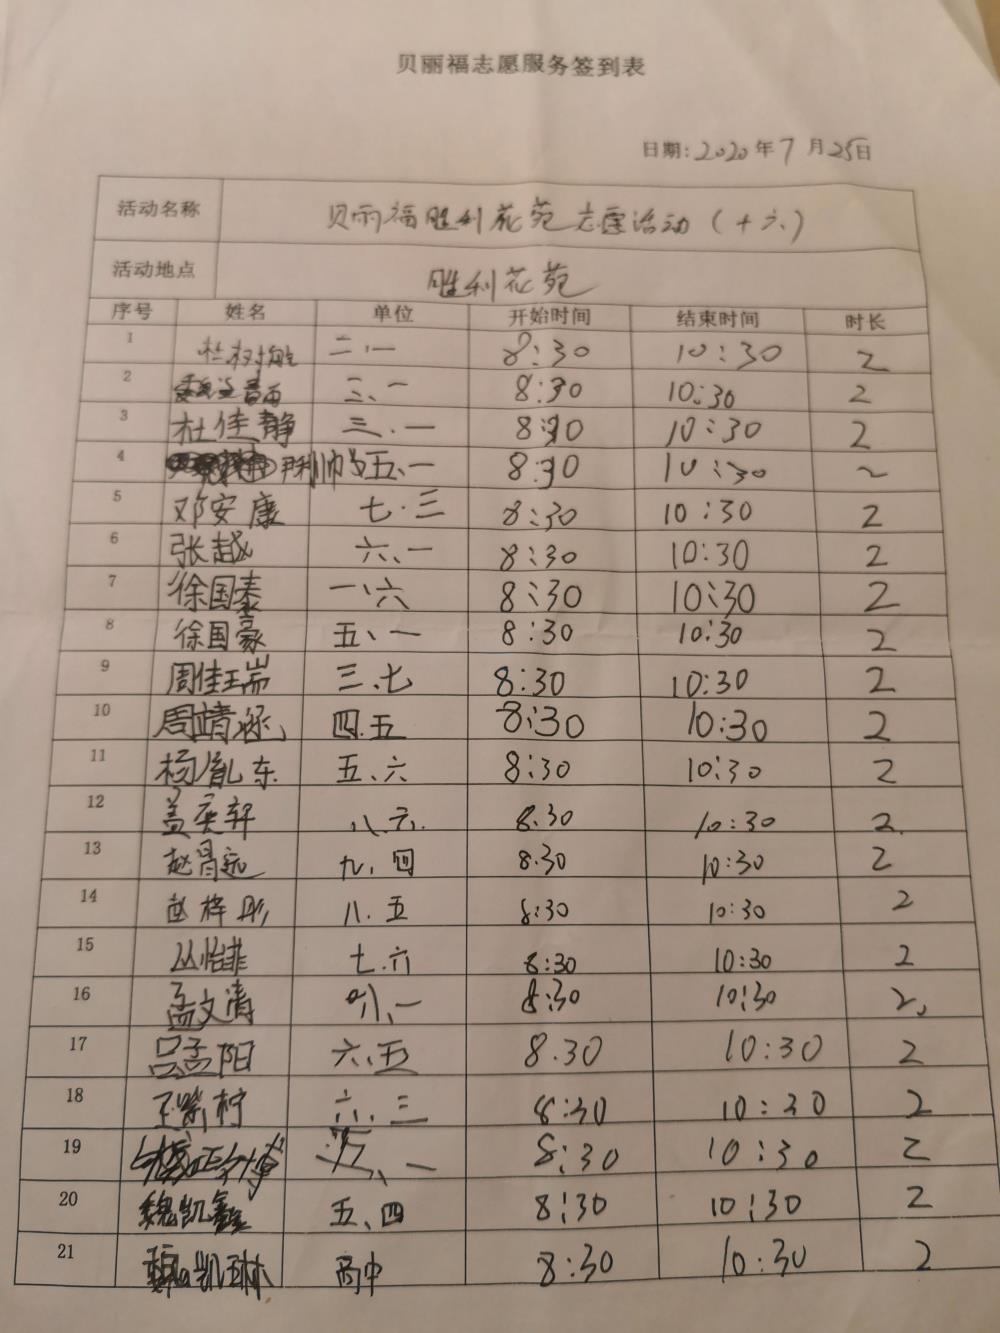 贝丽福志愿服务签到表
日期:2020年7月25日
活动名称 贝丽福胜利花苑志愿活动(十六)
活动地点 胜利花苑
序号 姓名 单位 开始时间 结束时间 时长
1 二、一 8:30 10:30 2
2 三、一 8:30 10:30 2
3 杜佳静 三、一 8:30 10:30 2
4 五、一 8:30 10:30 2
5 邓安康 七.三 8:30 10:30 2
6 张越 六、一 8:30 10:30 2
7 徐国泰 一、六 8:30 10:30 2
8 徐国豪 五、一 8:30 10:30 2
9 周佳瑞 三、七 8:30 10:30 2
10 周靖涵 四.五 8:30 10:30 2
11 杨胤东 五、六 8:30 10:30 2
12 盖奕轩 八.六. 8.30 10:30 2.
13 赵晋远 九、四 8.30 10:30 2
14 赵梓彤 八.五 8:30 10:30 2
15 丛怡菲 七.六 8:30 10:30 2
16 孟文清 八、一 8:30 10:30 2,
17 吕孟阳 六、五 8.30 10:30 2
18 王紫柠 六、三 8:30 10:30 2
19 8:30 10:30 2
20 魏凯鑫 五、四 8:30 10:30 2
21 魏凯琳 高中 8:30 10:30 2